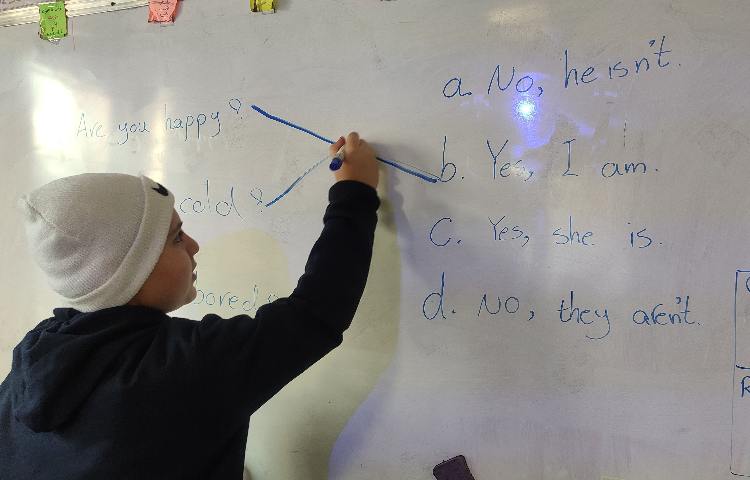 Are you happy?
cold?
bored
a. No, he isn't.
b. Yes, I am.
c. Yes, she is.
d. No, they aren't.
R